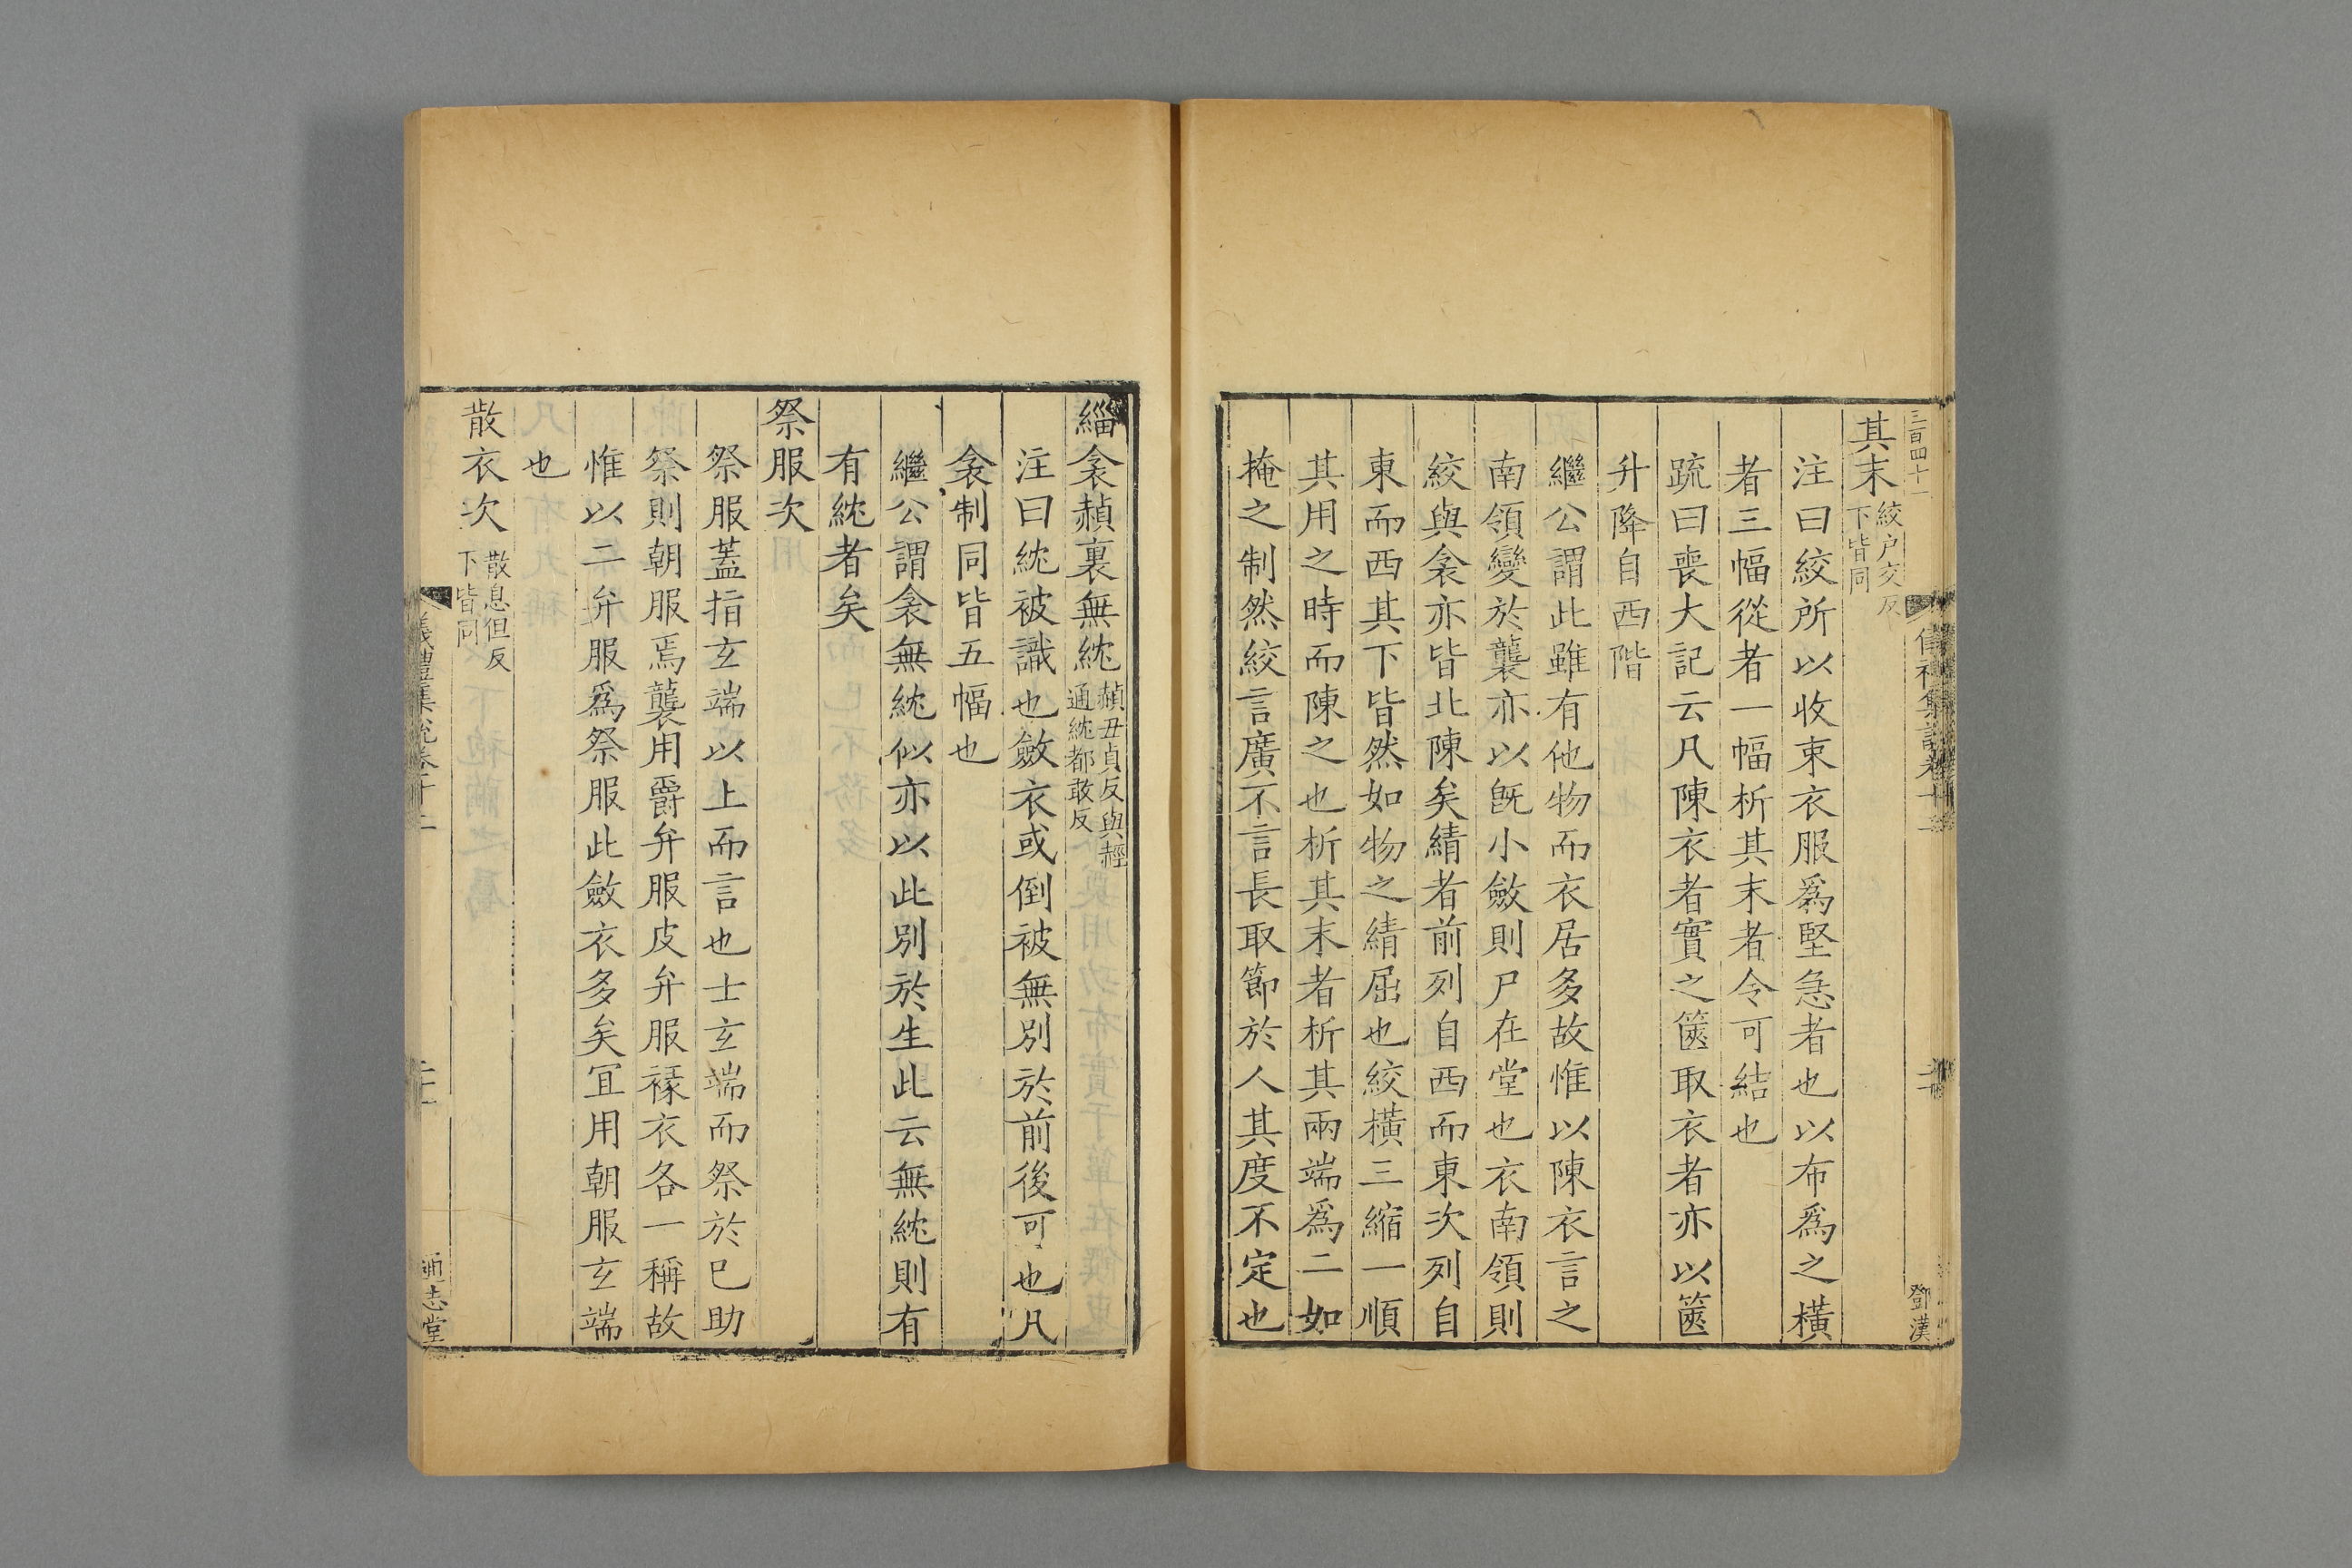 三百四十一
其末絞户交反下皆同
注曰絞所以收束衣服爲堅急者也以布爲之橫
者三幅從者一幅析其末者令可結也
疏曰喪大記云凡陳衣者實之篋取衣者亦以篋
升降自西階
繼公謂此雖有他物而衣居多故惟以陳衣言之
南領變於襲亦以旣小斂則尸在堂也衣南領則
絞與衾亦皆北陳矣綪者前列自西而東次列自
東而西其下皆然如物之綪屈也絞橫三縮一順
其用之時而陳之也析其末者析其兩端爲二如
掩之制然絞言廣不言長取節於人其度不定也
鄧漢
緇衾赬裏無紞赬丑貞反與䞓通紞都敢反
注曰紞被識也斂衣或倒被無別於前後可也凡
衾制同皆五幅也
繼公謂衾無紞似亦以此別於生此云無紞則有
有紞者矣
祭服次
祭服蓋指玄端以上而言也士玄端而祭於已助
祭則朝服焉襲用爵弁服皮弁服褖衣各一稱故
惟以二弁服爲祭服此斂衣多矣冝用朝服玄端
也
散衣次散息但反下皆同
儀禮集說卷十二
通志堂